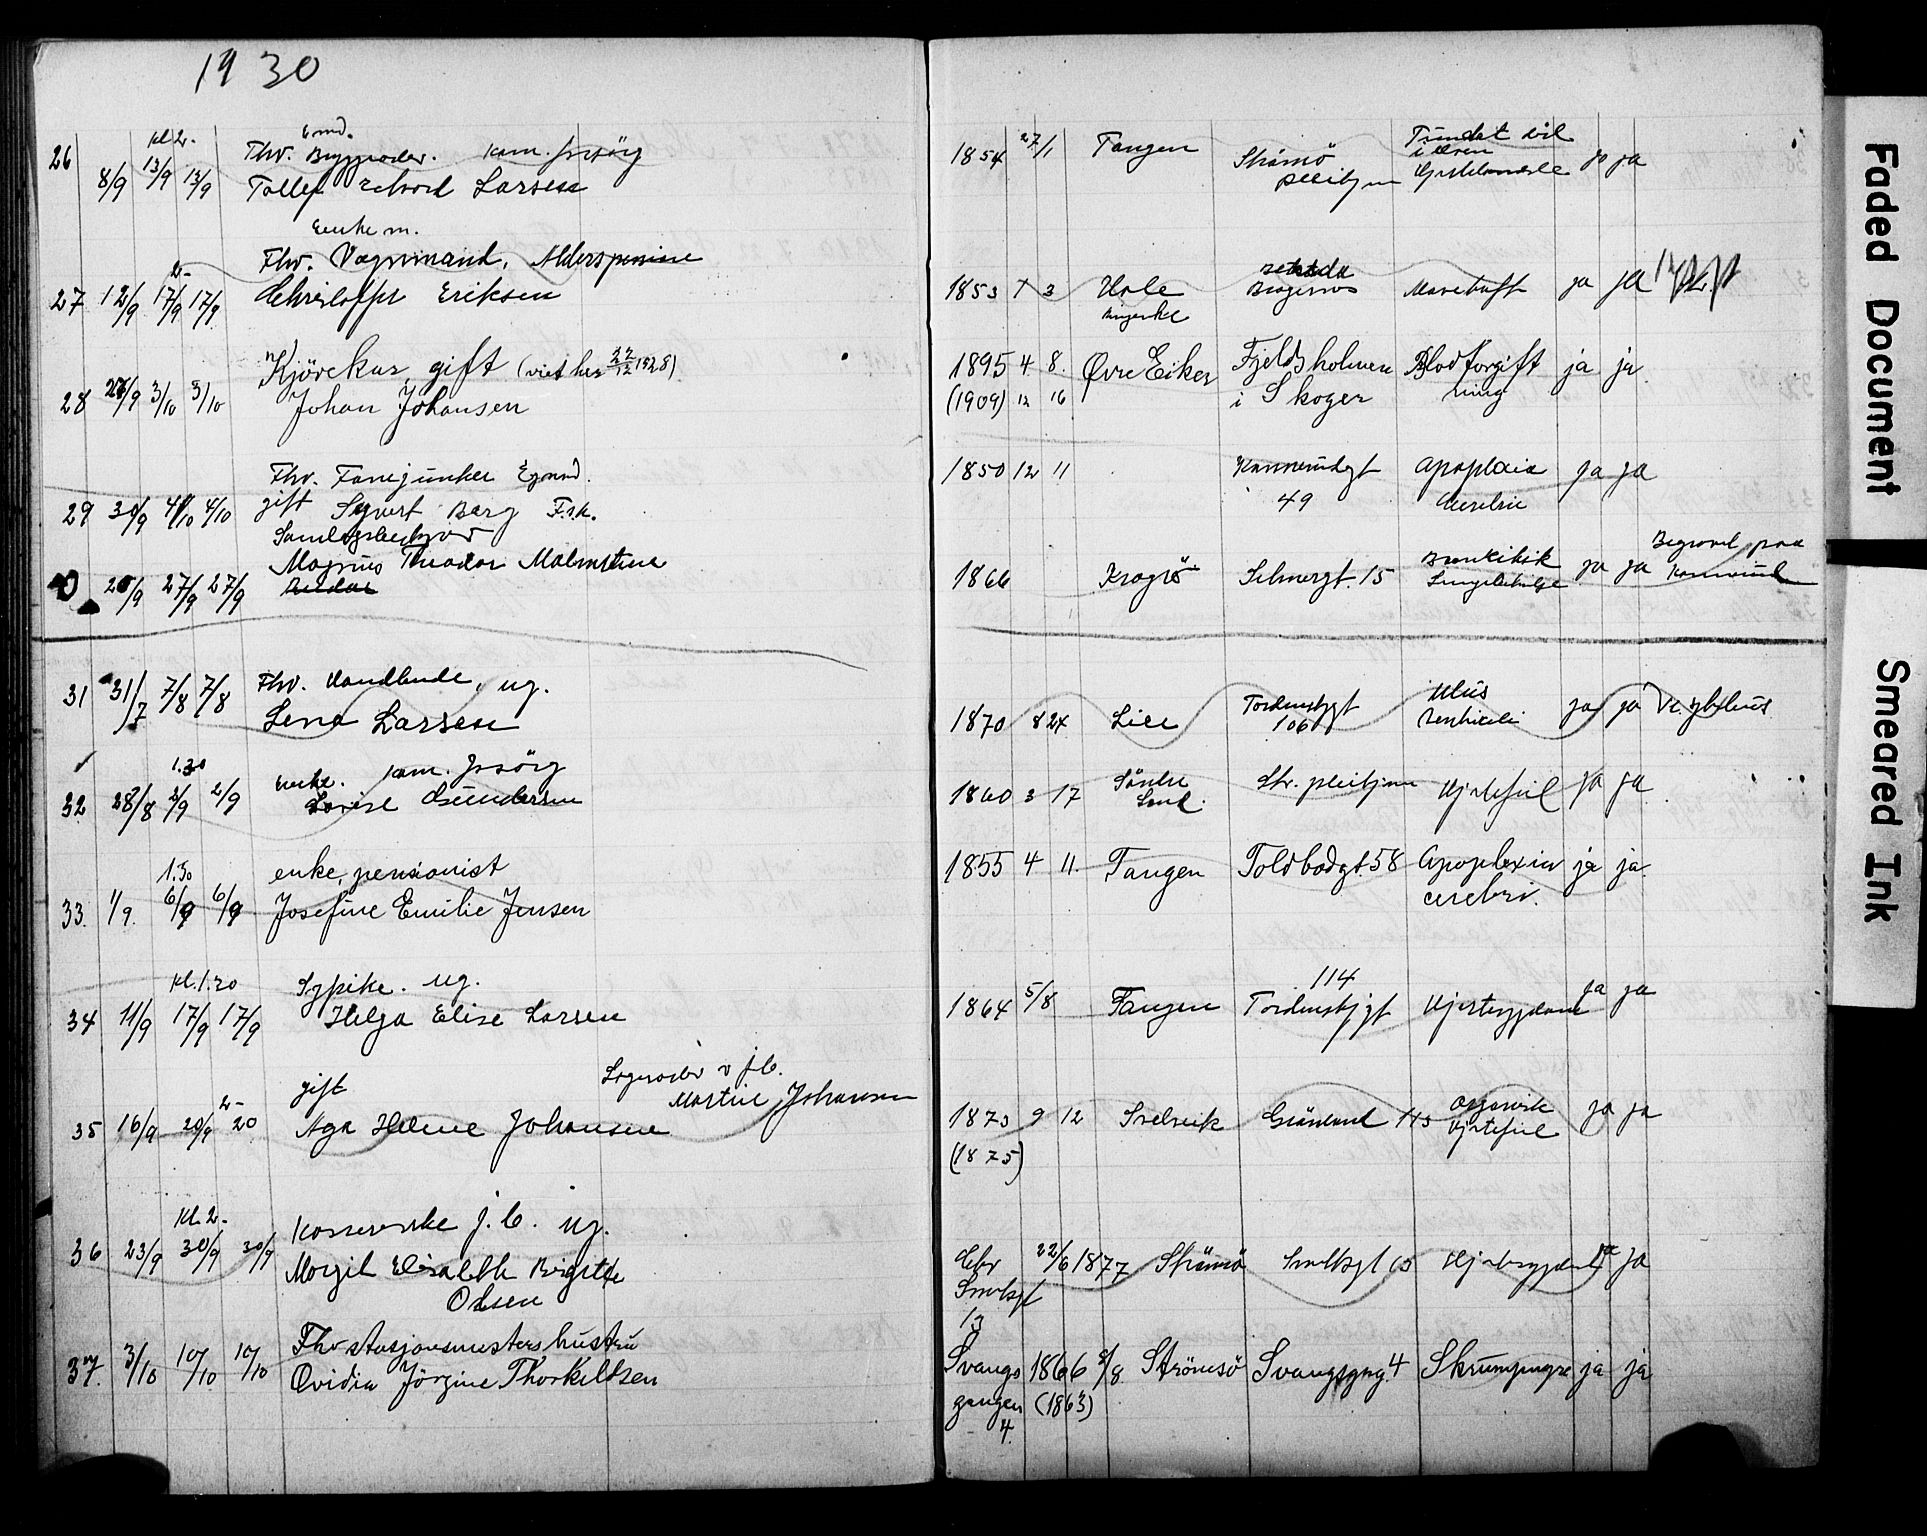 1930
26 8/9 kl 2- 13/9 13/9 Emd.
Fhv. Bryggearbr. kom. forsörg
Tollef Larsen
1854 27/1 Tangen Strömsö pleiehjem
27 12/9 2- 17/9 17/9 Enkem.
Fhv. Vognmand, Alderspensione
Christoffer Eriksen
1853 7 3 Hole Ringerike Bragernes Mavekreft ja ja
28 27/9 3/10 3/10 Kjörekar gift (viet her 22/12 1928)
Johan Johansen
1895 4 8. Øvre Eiker Fjeldsholmen Blodforgift ja ja
(1909) 12 16 i Skoger ning
29 30/9 4/10 4/10 Fhv. Fanejunker
gift Syvert Berg F.sk.
1850 12 11 Konnerudgt 49 Apoplexia cerebri ja ja
25/9 27/9 27/9 Samlagsbestyrer
Magnus Theodor Malmstene
1866 Kragrö Schwergt. 15 Lungebetendelse ja ja Begravet paa Konnerud
31 31/7 7/8 7/8 Fhv. Handlende, ug.
Lena Larsen
1870 8 24 Lier Tordenskjgt 106 Ulcus ventriculi ja ja
32 28/8 1.30 2/9 2/9 enke. kom. forsörg
Lovise Gundersen
1860 3 17 Söndre Sand. Str. pleiehjem Hjertefeil ja ja
33. 1/9. 1.30 6/9 6/9 enke, pensionist
Josefine Emilie Jensen
1855 4 11. Tangen Toldbodgt. 58 Apoplexia cerebri. ja ja.
34 11/9 kl. 1.20 17/9 17/9 Sypike. ug.
Helga Elise Larsen
1864 5/8 Tangen 114 Tordenskjgt Hjertesygdom ja ja
35 16/9 20/9 2- 20 gift
Aga Helene Johansen
Lagerarbr v j.b. Martin Johansen
1873 9 12 Svelvik Grönland 115 Hjertefeil ja ja
(1875)
36 23/9 kl. 2- 30/9 30/9 Kassererske j.b. ug.
Margit Elisabeth Birgitte
Olsen
Chr Smithsgt 13 22/6 1877 Strömsö Smithsgt 13 Hjertesygdom ja ja
37. 3/10 10/10 10/10 Fhv stasjonsmesters hustru
Ovidia Jörgine Thorkildsen
Svangs 1866 8/8 Strömsö Svangsgng. 4 Skrumpnyre ja ja
gangen (1863)
4.
Faded Document
Smeared Ink